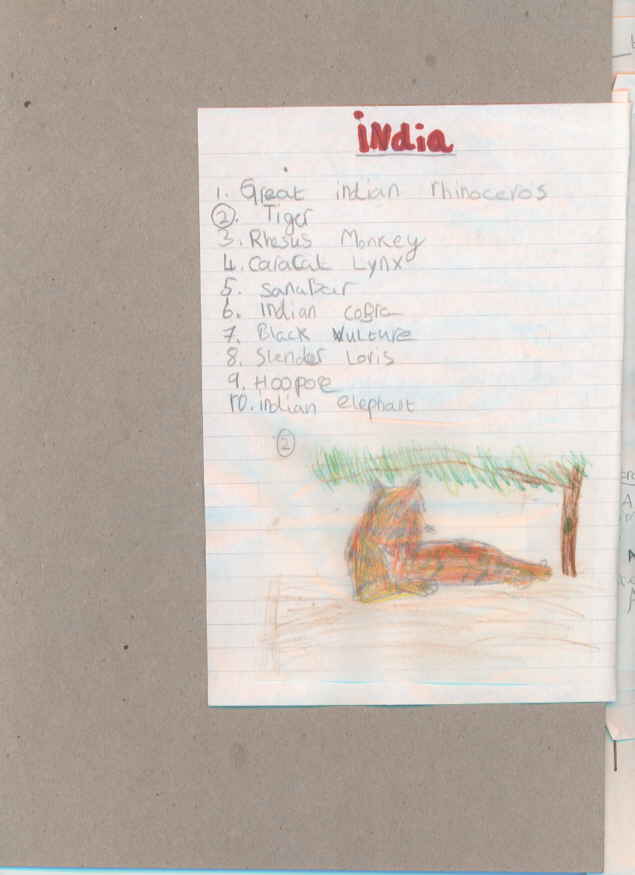 iNdia
1. Great indian rhinoceros
2. Tiger
3. Rhesus Monkey
4. Caracal Lynx
5. Sambar
6. Indian cobra
7. Black Vulture
8. Slender Loris
9. Hoopoe
10. indian elephant
2